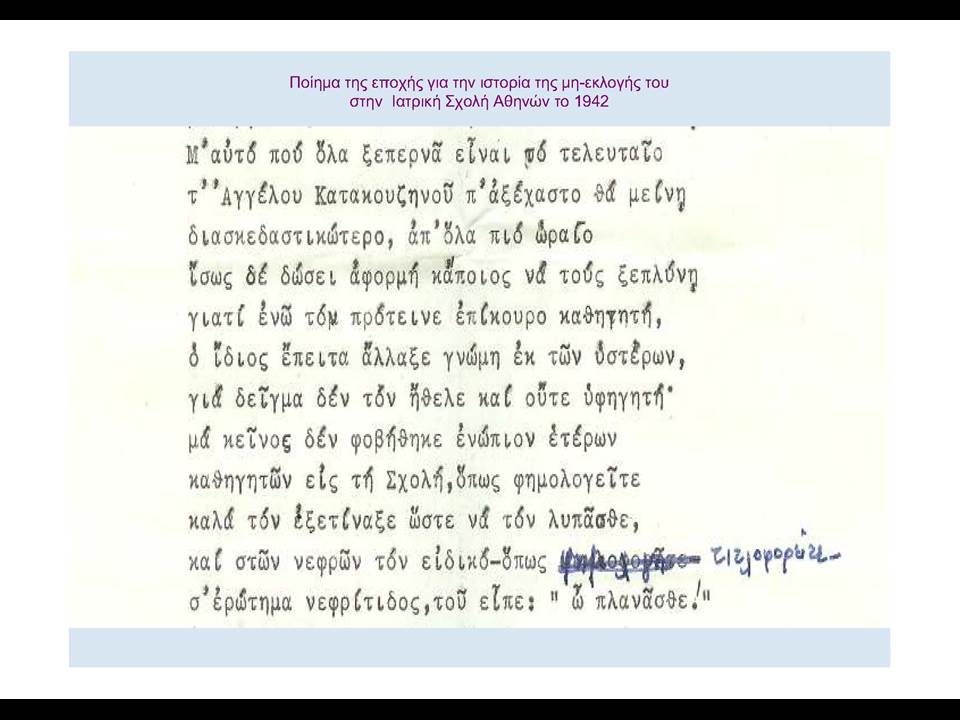 Ποίημα της εποχής για την ιστορία της μη-εκλογής του
στην Ιατρική Σχολή Αθηνών το 1942
Μ'αὐτό πού ὅλα ξεπερνᾶ εἶναι τό τελευταῖο
τ''Αγγέλου Κατακουζηνοῦ π'ἀξέχαστο θά μείνῃ
διασκεδαστικώτερο, ἀπ'ὅλα πιό ὡραῖο
ἴσως δέ δώσει ἀφορμή κἄποιος νά τούς ξεπλύνῃ
γιατί ἐνῶ τόν πρότεινε ἐπίκουρο καθηγητή,
ὁ ἴδιος ἔπειτα ἄλλαξε γνώμη ἐκ τῶν ὑστέρων,
γιά δεῖγμα δέν τόν ἤθελε καί οὔτε ὑφηγητή·
μά κεῖνος δέν φοβήθηκε ἐνώπιον ἑτέρων
καθηγητῶν εἰς τή Σχολή,ὅπως φημολογεῖτε
καλά τόν ἐξετίναξε ὥστε νά τόν λυπᾶσθε,
καί στῶν νεφρῶν τόν εἰδικό-ὅπως τιτλοφορεῖτε-
σ'ἐρώτημα νεφρίτιδος,τοῦ εἶπε: " ὦ πλανᾶσθε!"